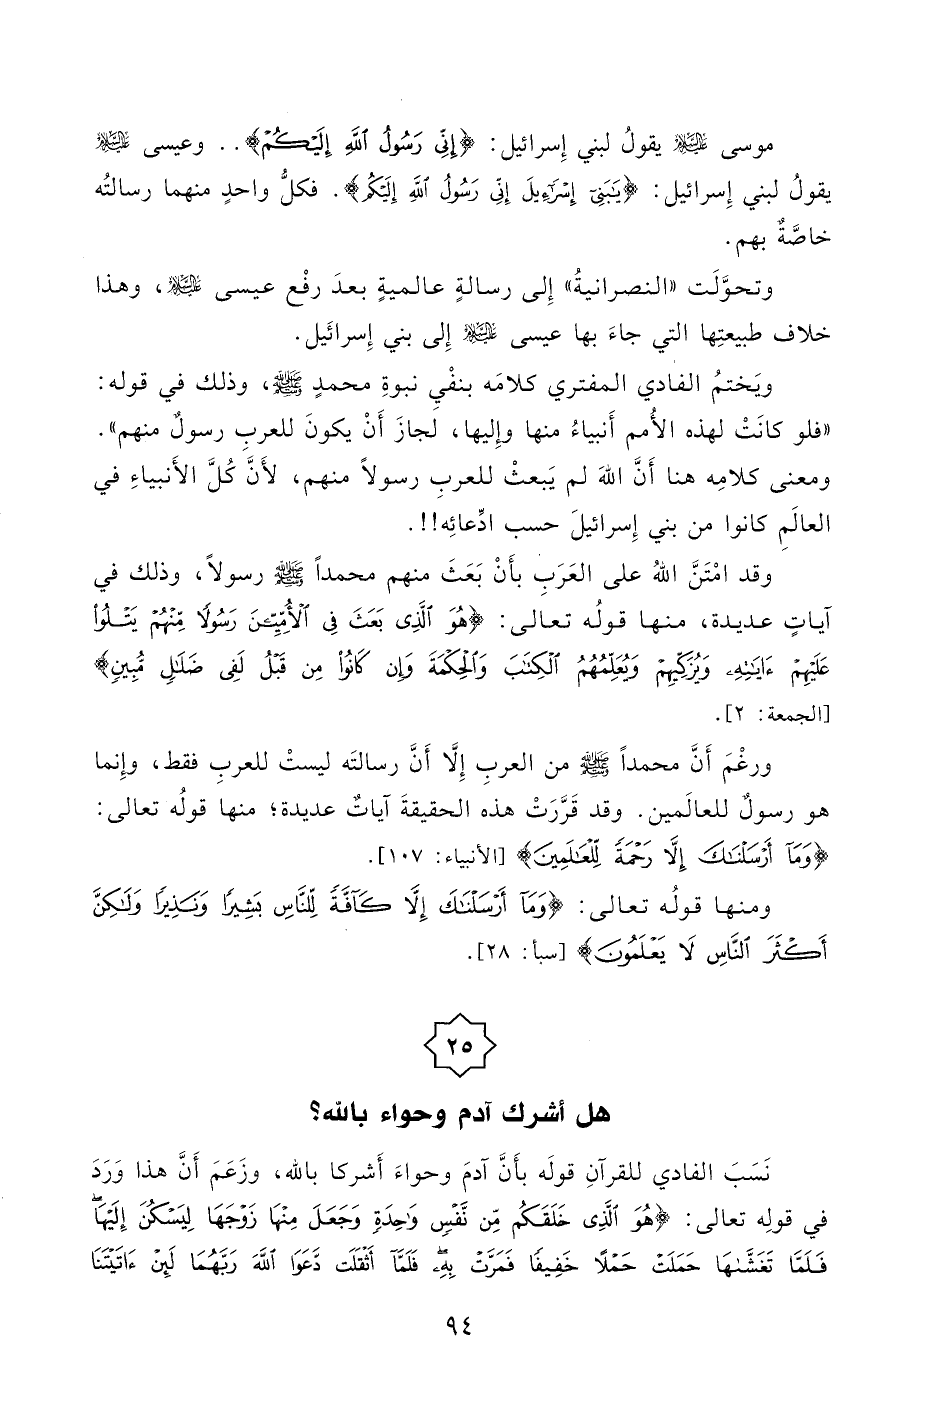 موسى ﷤ يقولُ لبني إِسرائيل: ﴿إِنِّي رَسُولُ ٱللَّهِ إِلَيْكُم﴾.. وعيسى ﷤
يقولُ لبني إِسرائيل: ﴿يَٰبَنِىٓ إِسْرَٰٓءِيلَ إِنِّى رَسُولُ ٱللَّهِ إِلَيْكُم﴾. فكلُّ واحدٍ منهما رسالتُه
خاصَّةٌ بهم.
وتحوَّلَت «النصرانيةُ» إِلى رسالةٍ عالميةٍ بعدَ رفْع عيسى ﷤، وهذا
خلاف طبيعتِها التي جاءَ بها عيسى ﷤ إِلى بني إِسرائَيل.
ويَختمُ الفادي المفتري كلامَه بنفْيِ نبوةِ محمدٍ ﷺ، وذلك في قوله:
«فلو كانَتْ لهذه الأُمم أَنبياءُ منها وإِليها، لجازَ أَنْ يكونَ للعربِ رسولٌ منهم».
ومعنى كلامِه هنا أَنَّ اللهَ لم يَبعثْ للعربِ رسولاً منهم، لأَنَّ كُلَّ الأَنبياءِ في
العالَمِ كانوا من بني إِسرائيلَ حسب ادِّعائِه!!.
وقد امْتَنَّ اللهُ على العَرَبِ بأَنْ بَعَثَ منهم محمداً ﷺ رسولاً، وذلك في
آياتٍ عديدة، منها قولُه تعالى: ﴿هُوَ ٱلَّذِى بَعَثَ فِى ٱلْأُمِّيِّـۧنَ رَسُولًا مِّنْهُمْ يَتْلُوا۟
عَلَيْهِمْ ءَايَٰتِهِۦ وَيُزَكِّيهِمْ وَيُعَلِّمُهُمُ ٱلْكِتَٰبَ وَٱلْحِكْمَةَ وَإِن كَانُوا۟ مِن قَبْلُ لَفِى ضَلَٰلٍ مُّبِينٍ﴾
[الجمعة: ٢].
ورغْمَ أَنَّ محمداً ﷺ من العربِ إِلَّا أَنَّ رسالتَه ليستْ للعربِ فقط، وإِنما
هو رسولٌ للعالَمين. وقد قرَّرَتْ هذه الحقيقةَ آياتٌ عديدة؛ منها قولُه تعالى:
﴿وَمَآ أَرْسَلْنَٰكَ إِلَّا رَحْمَةً لِّلْعَٰلَمِينَ﴾ [الأنبياء: ١٠٧].
ومنها قولُه تعالى: ﴿وَمَآ أَرْسَلْنَٰكَ إِلَّا كَآفَّةً لِّلنَّاسِ بَشِيرًا وَنَذِيرًا وَلَٰكِنَّ
أَكْثَرَ ٱلنَّاسِ لَا يَعْلَمُونَ﴾ [سبأ: ٢٨].
٢٥
هل أشرك آدم وحواء بالله؟
نَسَبَ الفادي للقرآنِ قولَه بأَنَّ آدمَ وحواءَ أَشركا بالله، وزَعَمَ أَنَّ هذا وَرَدَ
في قولِه تعالى: ﴿هُوَ ٱلَّذِى خَلَقَكُم مِّن نَّفْسٍ وَٰحِدَةٍ وَجَعَلَ مِنْهَا زَوْجَهَا لِيَسْكُنَ إِلَيْهَاۖ
فَلَمَّا تَغَشَّىٰهَا حَمَلَتْ حَمْلًا خَفِيفًا فَمَرَّتْ بِهِۦۖ فَلَمَّآ أَثْقَلَت دَّعَوَا ٱللَّهَ رَبَّهُمَا لَئِنْ ءَاتَيْتَنَا
٩٤